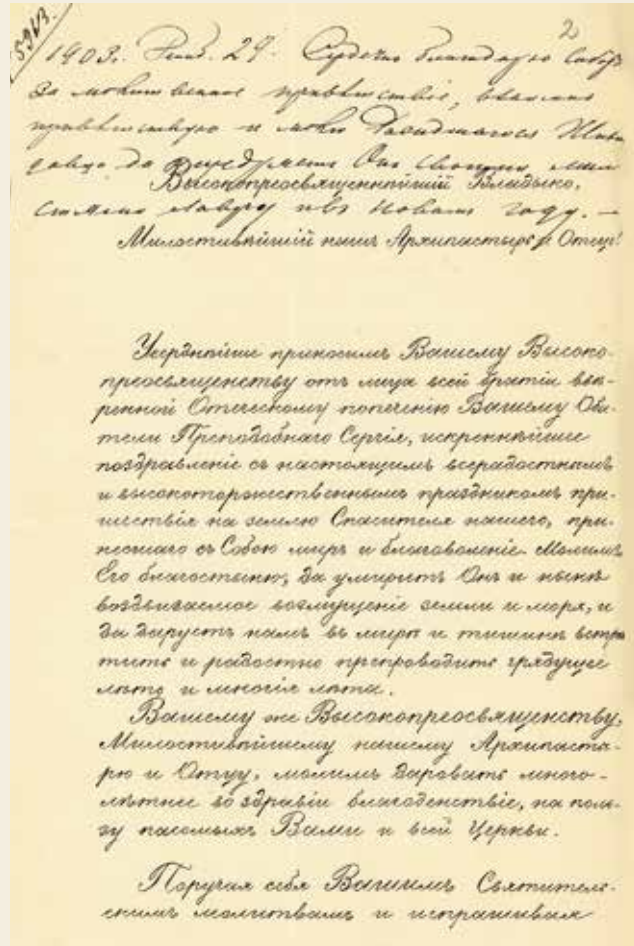 5963.
2
1903. Декаб. 29. Сердечно благодарю Собор
за молитвенное приветствіе, взаимно
приветствую и молю
да Онъ
Высокопреосвященнѣйшій Владыко,
Лавру и въ Новомъ году. —
Милостивѣйшій нашъ Архипастырь и Отецъ!
Усерднѣйше приносимъ Вашему Высоко-
преосвященству отъ лица всей братіи ввѣ-
ренной Отеческому попеченію Вашему Оби-
тели Преподобнаго Сергія, искреннѣйшее
поздравленіе съ настоящимъ всерадостнымъ
и высокоторжественнымъ праздникомъ при-
шествія на землю Спасителя нашего, при-
несшаго съ Собою миръ и благоволеніе. Молимъ
Его благостыню, да умиритъ Онъ и нынѣ
воздвигаемое возмущеніе земли и моря, и
да даруетъ намъ въ мирѣ и тишинѣ встрѣ
тить и радостно препроводить грядущее
лѣто и многія лѣта.
Вашему же Высокопреосвященству,
Милостивѣйшему нашему Архипасты-
рю и Отцу, молимъ даровать много-
лѣтнее во здравіи благоденствіе, на поль-
зу пасомыхъ Вами и всей Церкви.
Поручая себя Вашимъ Святитель-
скимъ молитвамъ и испрашивая